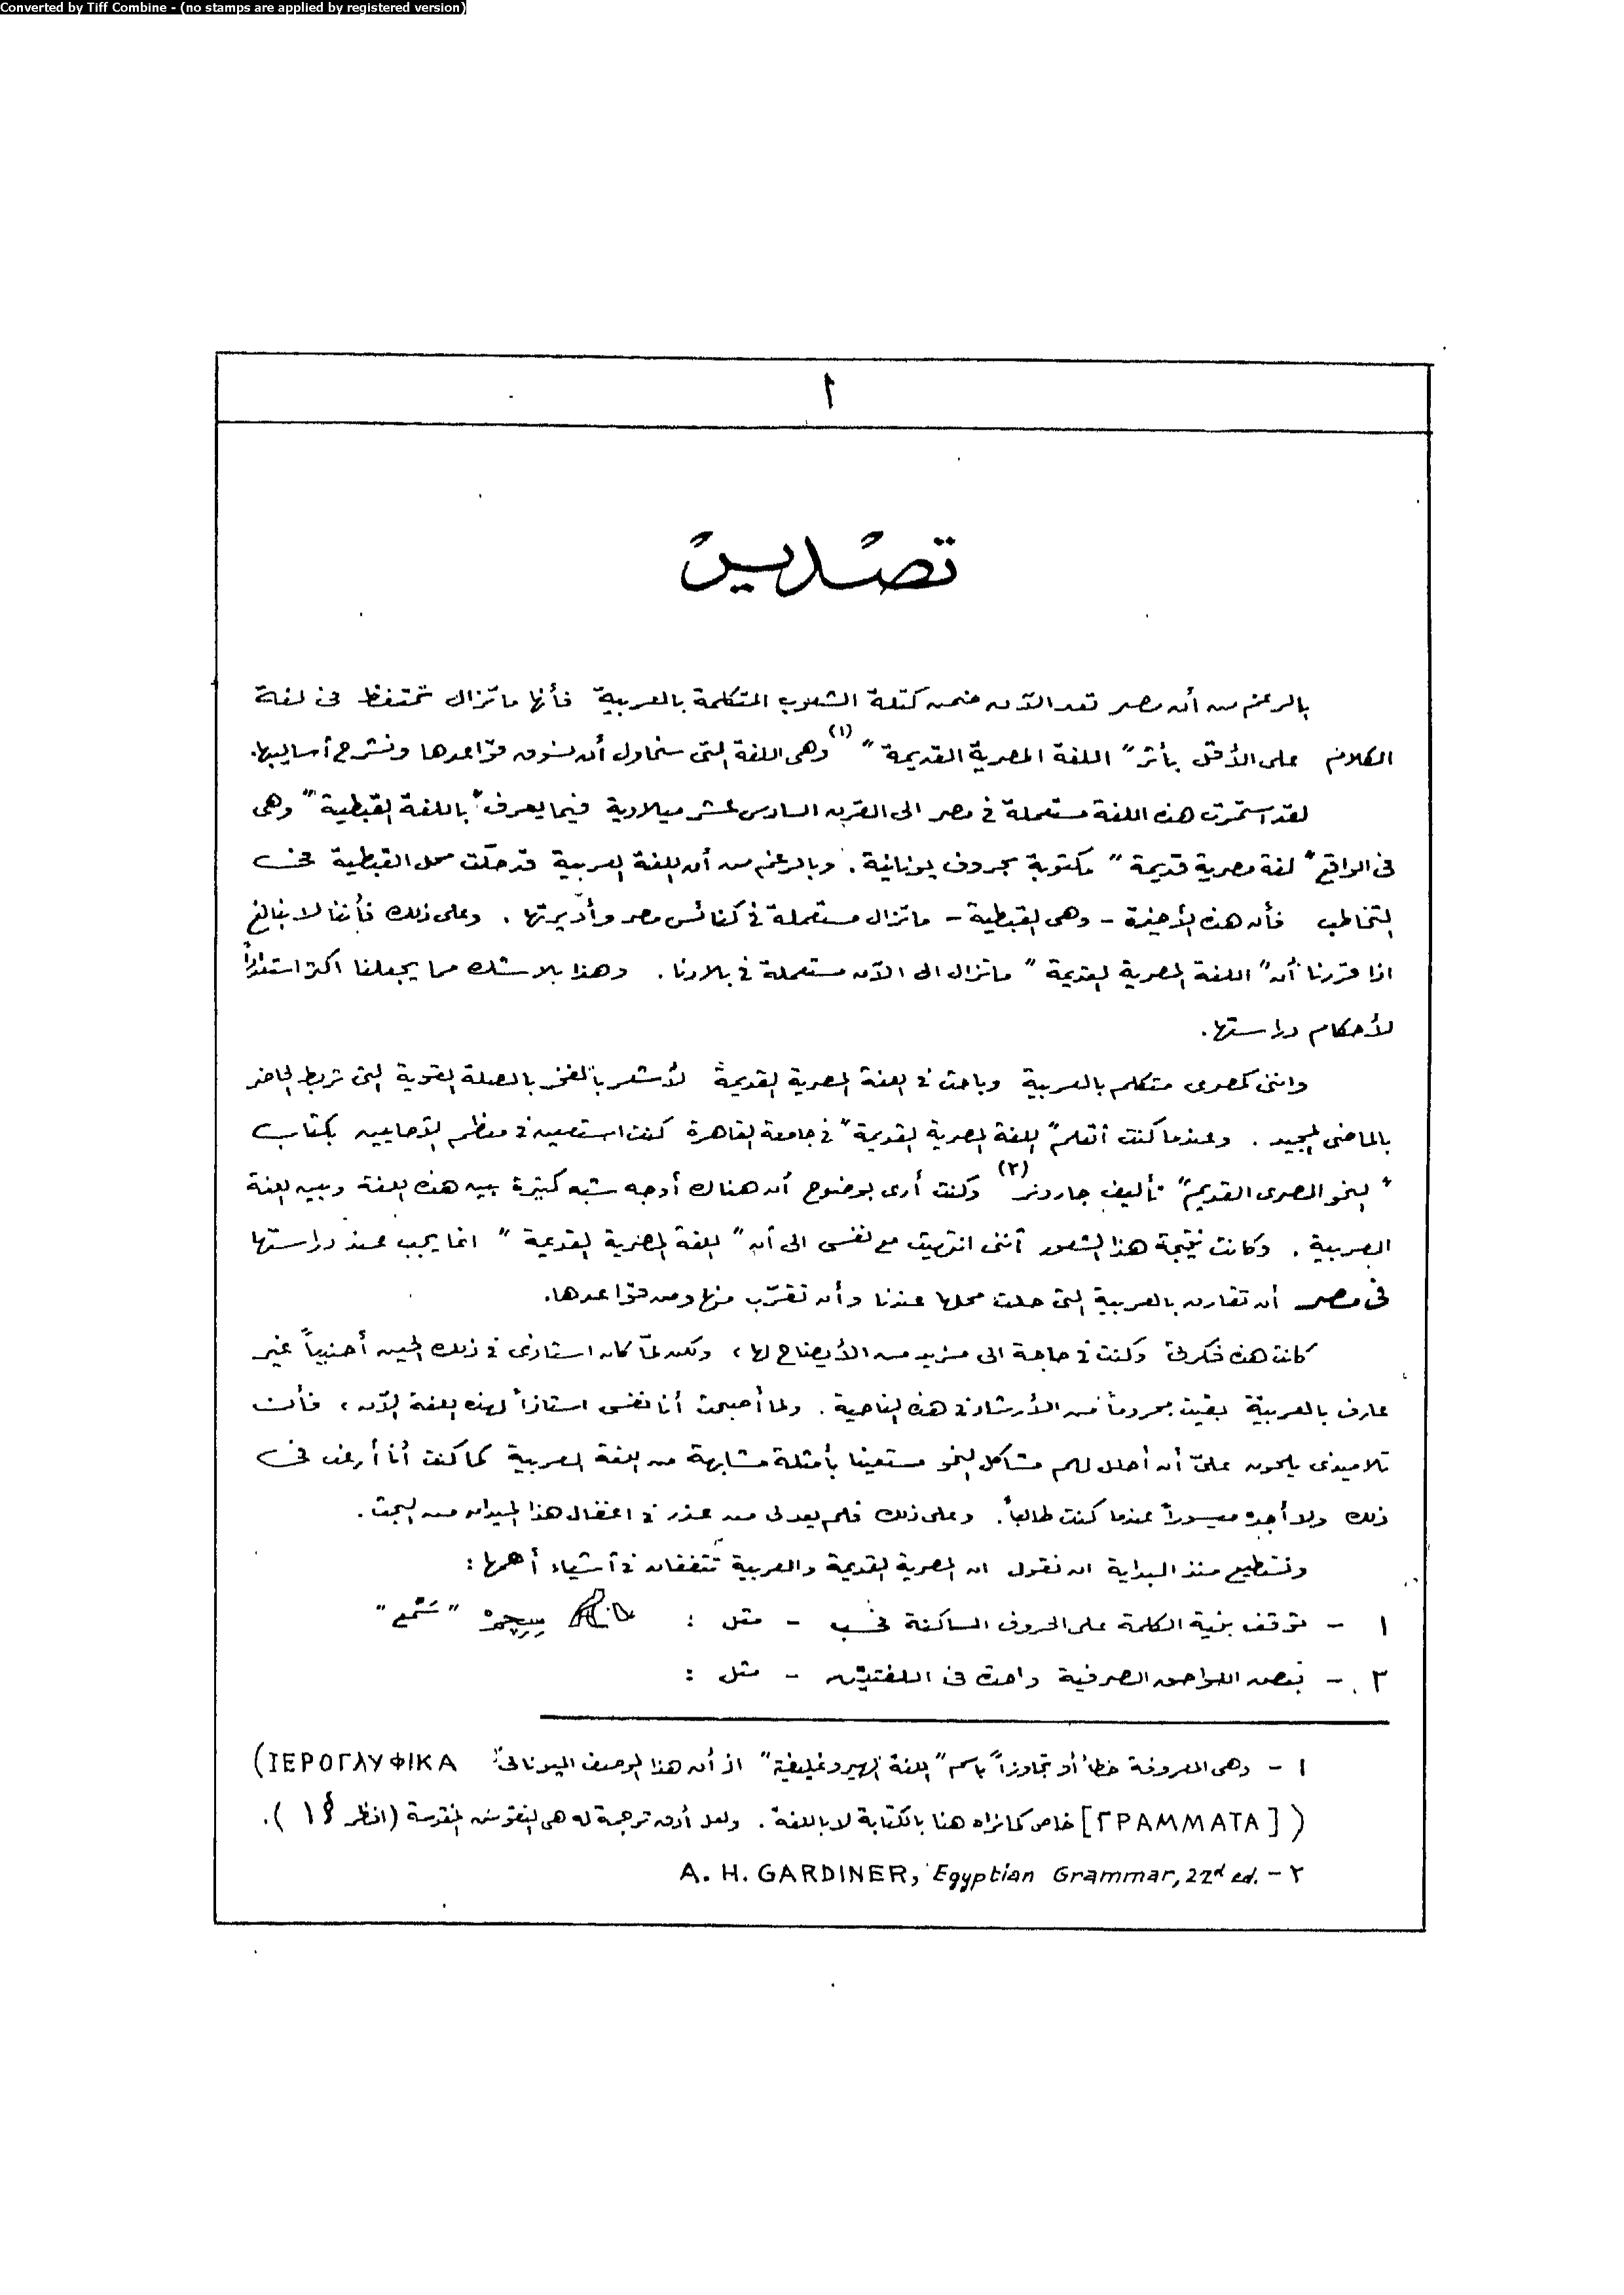 Converted by Tiff Combine - (no stamps are applied by registered version)
١
تصدير
بالرغم من أن مصر تعد الآن ضمن كتلة الشعوب المتكلمة بالعربية فأنها ماتزال تحتفظ فى لغة
الكلام على الأقل بأثر " اللغة المصرية القديمة " (١) وهى اللغة التى سنحاول أن نسوق قواعدها ونشرح أساليبها.
لقد استمرت هذه اللغة مستعملة فى مصر الى القرن السادس عشر ميلادية فيما يعرف " باللغة القبطية " وهى
فى الواقع " لغة مصرية قديمة " مكتوبة بحروف يونانية . وبالرغم من أن اللغة العربية قد حلّت محل القبطية فى
التخاطب فأن هذه الأخيرة - وهى القبطية - ماتزال مستعملة فى كنائس مصر وأديرتها . وعلى ذلك فأننا لا نبالغ
اذا قررنا أن " اللغة المصرية القديمة " ماتزال الى الآن مستعملة فى بلادنا . وهذا بلا شك مما يجعلنا اكثر استعداداً
لأحكام دراستها .
واننى كمصرى متكلم بالعربية وباحث فى اللغة المصرية القديمة لأشعر بالفخر بالصلة القوية التى تربط الحاضر
بالماضى المجيد . وعندما كنت أتعلم " اللغة المصرية القديمة " فى جامعة القاهرة كنت استعين فى معظم الأحايين بكتاب
" النحو المصرى القديم " تأليف جاردنر (٢) وكنت أرى بوضوح أن هناك أوجه شبه كثيرة بين هذه اللغة وبين اللغة
العربية . وكانت نتيجة هذا الشعور أننى انتهيت مع نفسى الى أن " اللغة المصرية القديمة " انما يجب عند دراستها
فى مصر أن تقارن بالعربية التى حلت محلها عندنا وأن تقرّب منها ومن قواعدها.
كانت هذه فكرتى وكنت فى حاجة الى مزيد من الأيضاح لها ، ولكن لمّا كان استاذى فى ذلك الحين أجنبياً غير
عارف بالعربية بقيت محروماً من الأرشاد فى هذه الناحية . ولما أصبحت أنا نفسى استاذاً لهذه اللغة الآن ، فأن
تلاميذى يلحون علىّ أن أحلل لهم مشاكل النحو مستعينا بأمثلة مشابهة من اللغة العربية كما كنت أنا أرغب فى
ذلك ولا أجده ميسوراً عندما كنت طالباً . وعلى ذلك فلم يعد لى من عذر فى اغفال هذا الميدان من البحث .
ونستطيع منذ البداية ان نقول ان المصرية القديمة والعربية تتفقان فى أشياء أهمها :
١ - تتوقف بنية الكلمة على الحروف الساكنة فحسب - مثل : " سَمع "
٢ - بعض اللواحق الصرفية واحدة فى اللغتين - مثل :
١ - وهى المعروفة خطأ أو تجاوزاً باسم " اللغة الهيروغليفية " اذ أن هذا الوصف اليونانى (ΙΕΡΟΓΛΥΦΙΚΑ
([ΓΡΑΜΜΑΤΑ] خاص كما نراه هنا بالكتابة لا باللغة . ولعل أدق ترجمة له هى النقوش المقدسة (انظر § ١ ).
٢ - A. H. GARDINER, Egyptian Grammar, 22d ed.